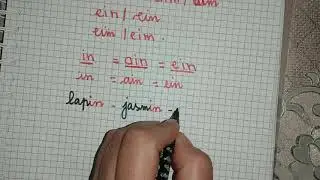 ein / ein
eim / eim.
in = ain = ein
in = ain = ein
lapin - jasmin -